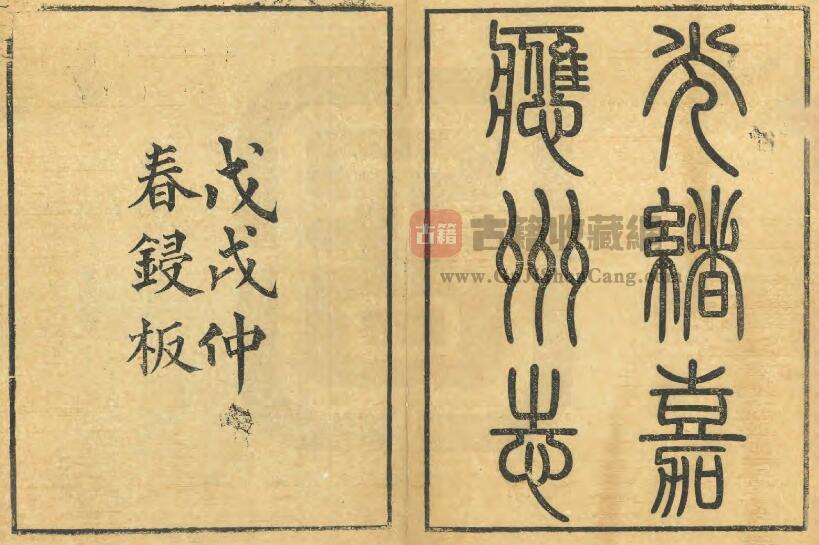 光緒嘉
應州志
戊戌仲
春鋟板
古籍
古籍收藏网
www.GuJiShouCang.com